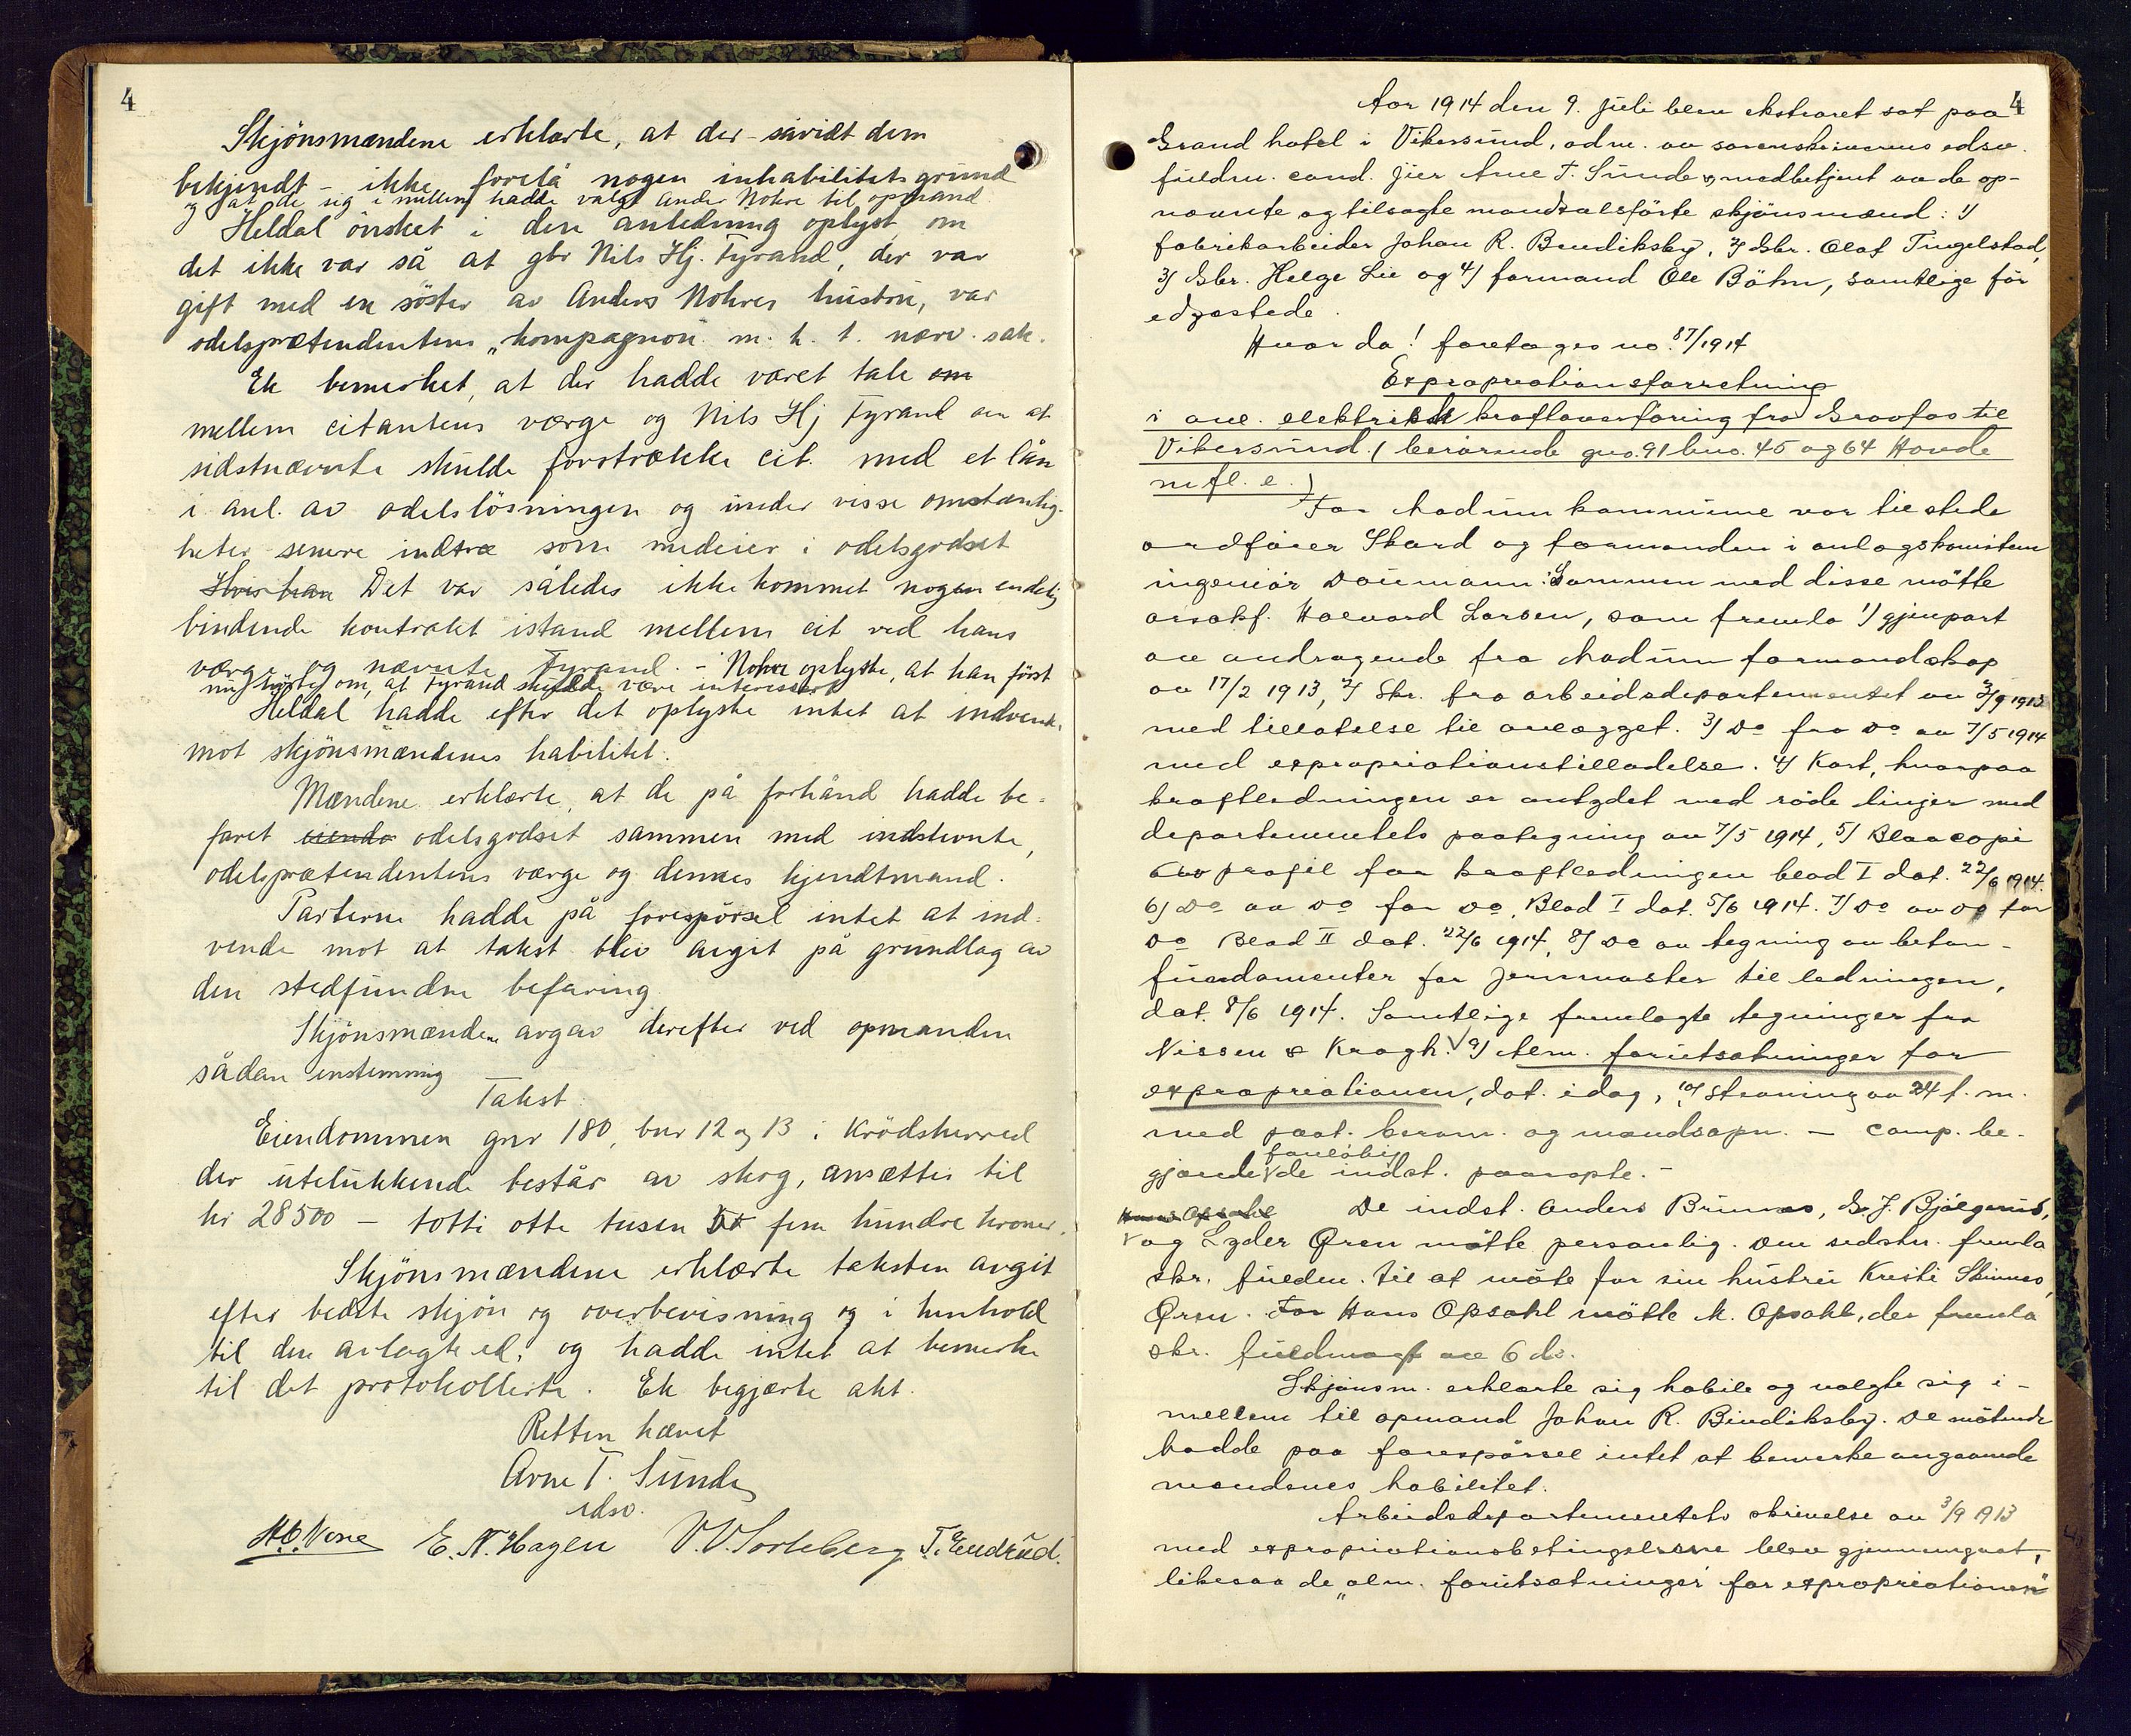 4
Skjönsmændene erklærte, at der - såvidt dem
bekjendt - ikke forelå nogen inhabilitetsgrund
og at de sig imellem hadde valgt Anders Nohre til opmand
Heldal önsket i den anledning oplyst om
det ikke var så at gbr Nils Hj. Fyrand, der var
gift med en söster av Anders Nohres hustru, var
odelsprætendentens „kompagnon" m. h. t. nærv. sak.
Ek bemerket, at der hadde været tale om
mellem citantens værge og Nils Hj Fyrand om at
sidstnævnte skulde forstrække cit. med et lån
i anl. av odelslösningen og under visse omstændig-
heter senere indtræ som medeier i odelsgodset
Hvis han Det var således ikke kommet nogen endelig
bindende kontrakt istand mellem cit ved hans
værge og nævnte Fyrand. - Nohre oplyste, at han först
nu hörte om, at Fyrand skulde være interessert
Heldal hadde efter det oplyste intet at indvende
mot skjönsmændenes habilitet.
Mændene erklærte, at de på forhånd hadde be-
faret eiendo odelsgodset sammen med indstevnte,
odelsprætendentens værge og dennes kjendtmand.
Parterne hadde på forespörsel intet at ind-
vende mot at takst blev avgit på grundlag av
den stedfundne befaring
Skjönsmændene avgav derefter ved opmanden
sådan enstemmig
Takst
Eiendommen gnr 180, bnr 12 og 13 i Krödsherred
der utelukkende består av skog, ansættes til
kr 28500 - totti otte tusen fem hundre kroner.
Skjönsmændene erklærte taksten avgit
efter bedste skjön og overbevisning og i henhold
til den avlagte ed, og hadde intet at bemerke
til det protokollerte. Ek begjærte akt.
Retten hævet
Arne T. Sunde
edsv.
E. N. Hagen V. V. Sorteberg T. Eudrud.
4
Aar 1914 den 9. juli blev ekstraret sat paa
Grand hotel i Vikersund, adm. av sorenskriverens edsv.
fuldm. cand. jur Arne T. Sunde og medbetjent av de op-
nævnte og tilsagte mandtalsförte skjönsmænd: 1)
fabrikarbeider Johan R. Bendiksby, 2) Gbr. Olaf Tingelstad,
3) Gbr. Helge Lie og 4) formand Ole Böhn, samtlige för
edfæstede.
Hvor da! foretages no. 87/1914
Expropriationsforretning
i anl. elektrisk kraftoverföring fra Gravfos til
Vikersund. (berörende gno. 91 bno. 45 og 64 Hovde
m fl. e.)
For Modum kommune var tilstede
ordförer Skard og formanden i anlægskomiteen
ingeniör Daumann. Sammen med disse mötte
orsakf. Halvard Larsen, som fremla 1) gjenpart
av andragende fra Modum formandskap
av 17/2 1913, 2) Skr. fra arbeidsdepartementet av 3/9 1913
med tillatelse til anlægget. 3) Do fra Do av 7/5 1914
med expropriationstilladelse. 4) Kart, hvorpaa
kraftledningen er antydet med röde linjer med
departementets paategning av 7/5 1914, 5) Blaacopi
av profil for kraftledningen blad I dat. 22/6 1914.
6) Do av Do for Do, Blad I dat. 5/6 1914. 7) Do av Do for
Do Blad II dat. 22/6 1914, 8) Do av tegning av beton-
fundamenter for jernmaster til ledningen,
dat. 8/6 1914. Samtlige fremlagte tegninger fra
Nissen & Kragh. 9) Alm. forutsætninger for
expropriationen, dat. idag, 10) Stevning av 24 f. m.
med paat. beram. og mandsopn. - Comp. be-
gjærde foreløbig de indst. paaropte. -
Hans Opsahl De indst. Anders Brunæs, G. J. Bjölgerud,
og Lyder Øren mötte personlig. Den sidstn. fremla
skr. fuldm. til at möte for sin hustru Kristi Skinnes
Øren. For Hans Opsahl mötte M. Opsahl, der fremla
skr. fuldmagt av 6 ds.
Skjönsm. erklærte sig habile og valgte sig i-
mellem til opmand Johan R. Bendiksby. De mötende
hadde paa forespörsel intet at bemerke angaaende
mændenes habilitet.
Arbeidsdepartementets skrivelse av 3/9 1913
med expropriationsbetingelserne blev gjennemgaat,
likesaa de „alm. forutsætninger for expropriationen"